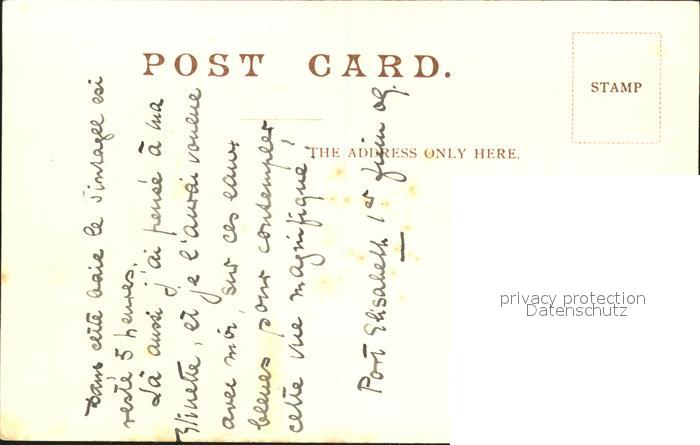 POST CARD.
STAMP
THE ADDRESS ONLY HERE.
Dans cette baie le Sintagel est
resté 5 heures.
Là aussi j'ai pensé à ma
Elinette, et je l'aurai voulue
avec moi, sur ces eaux
bleues pour contempler
cette vue magnifique!
Port Elisabeth 1er juin 09.
privacy protection
Datenschutz